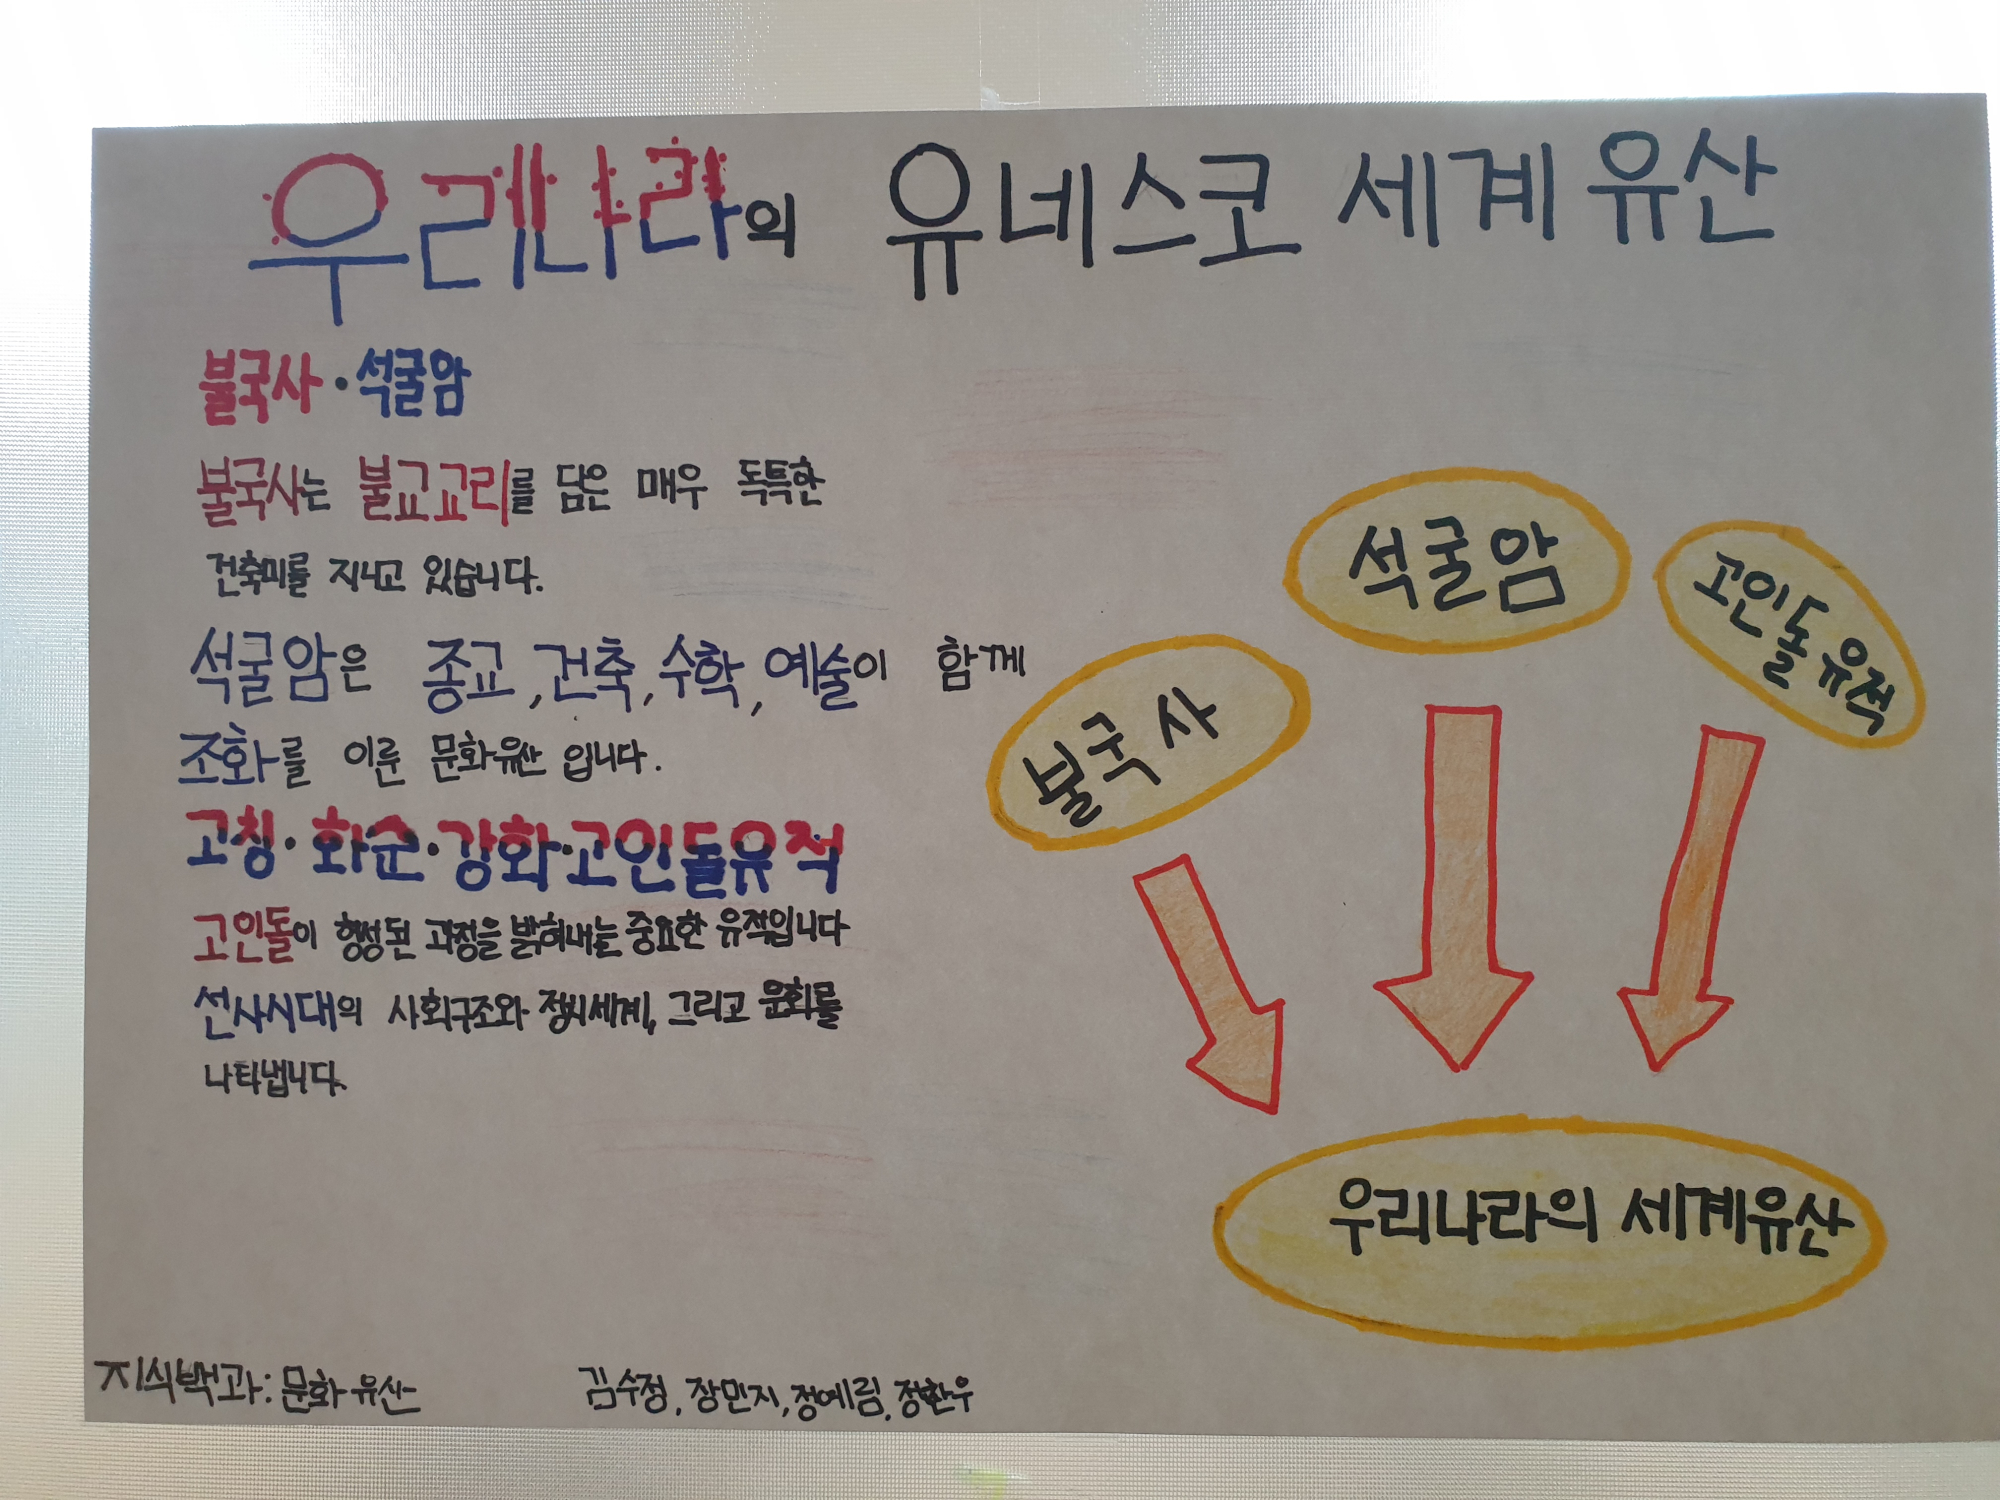 우리나라의 유네스코 세계 유산
불국사·석굴암
불국사는 불교교리를 담은 매우 독특한
건축미를 지니고 있습니다.
석굴암은 종교, 건축, 수학, 예술이 함께
조화를 이룬 문화유산 입니다.
고창·화순·강화·고인돌유적
고인돌이 형성된 과정을 밝혀내는 중요한 유적입니다
선사시대의 사회구조와 정신세계, 그리고 문화를
나타냅니다.
불국사
석굴암
고인돌 유적
우리나라의 세계유산
지식백과: 문화유산
김수정, 장민지, 정예림, 정찬우